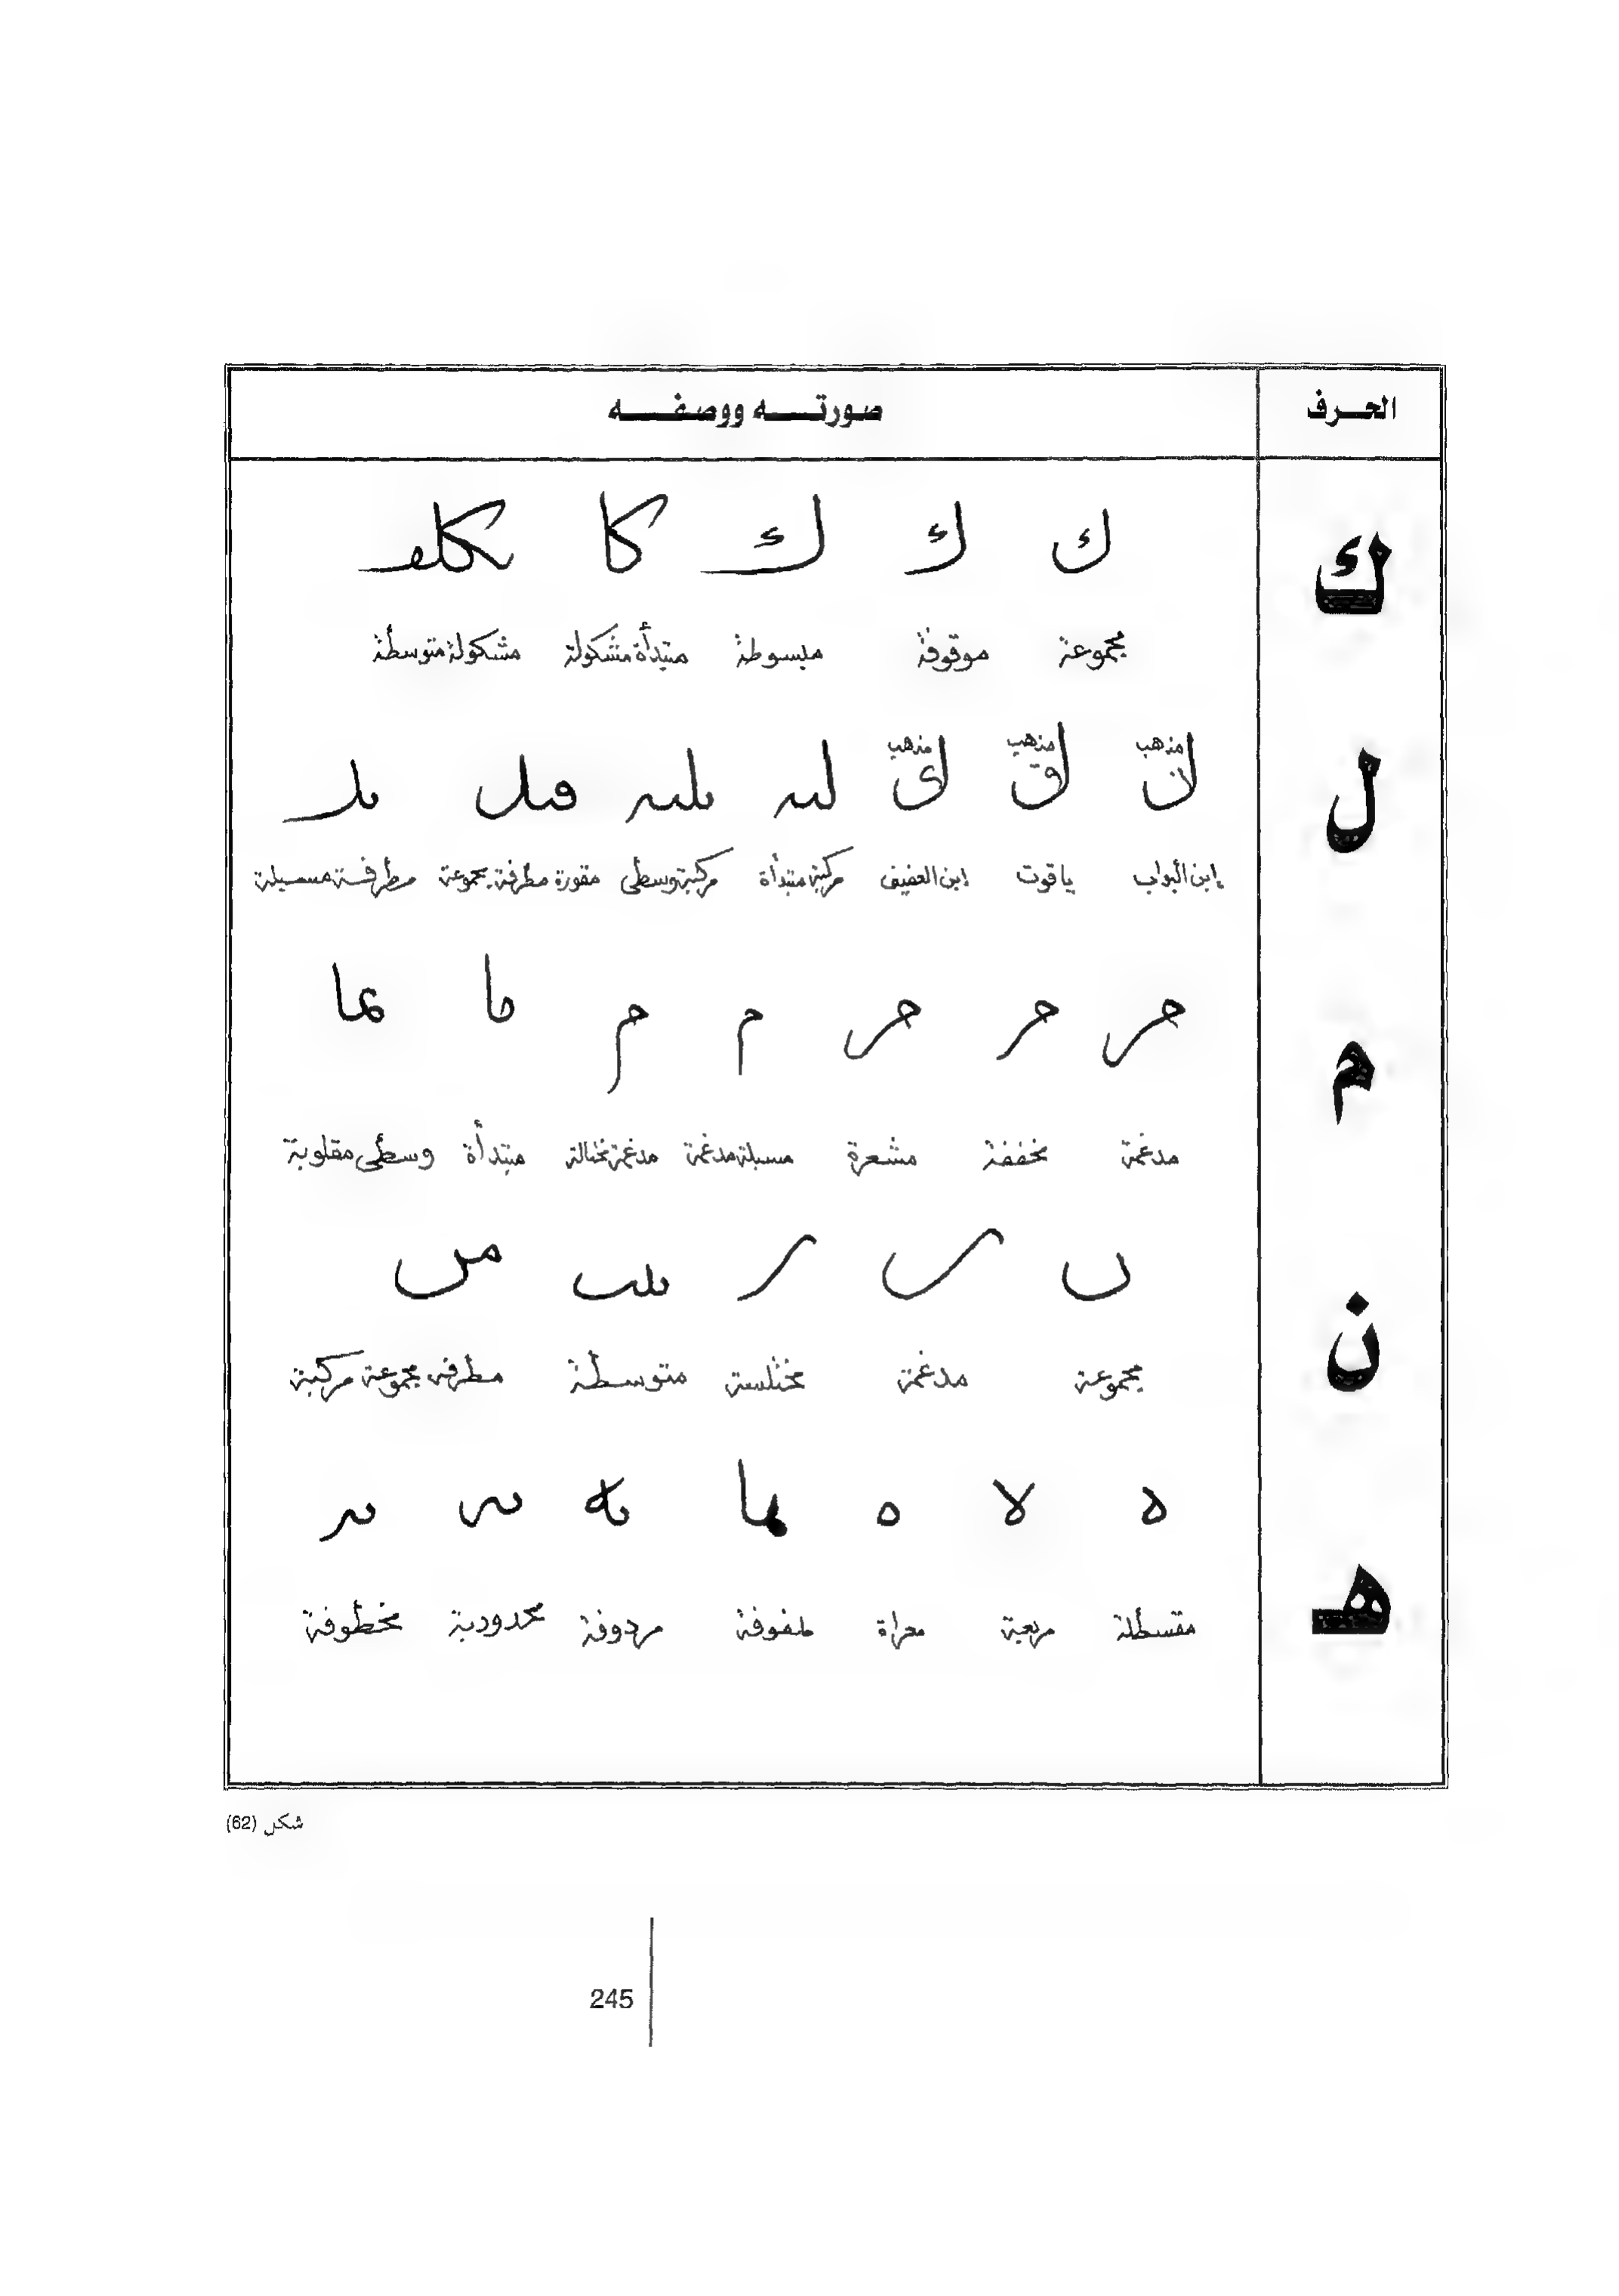 الحرف صورته ووصفه
ك ك ك ك كا ىكلف
مجموعة موقوفة مبسوطة مبتدأة مشكولة مشكولة متوسطة
مذهب مذهب مذهب
ل ل ل ل
إبن البواب ياقوت إبن العفيف مركبة مبتدأة مركبة وسطى مقورة مطرفة مجموعة مطرفة مسبلة
م م م م م م ما
مدغمة مخففة مشعرة مسبلة مدغمة مدغمة مختالة مبتدأة وسطى مقلوبة
ن ں
مجموعة مدغمة مختلسة متوسطة مطرفة مجموعة مركبة
هـ ه لا ه ها
مربعة معراة ملفوفة مردوفة محدودبة مخطوفة
شكل (62)
245